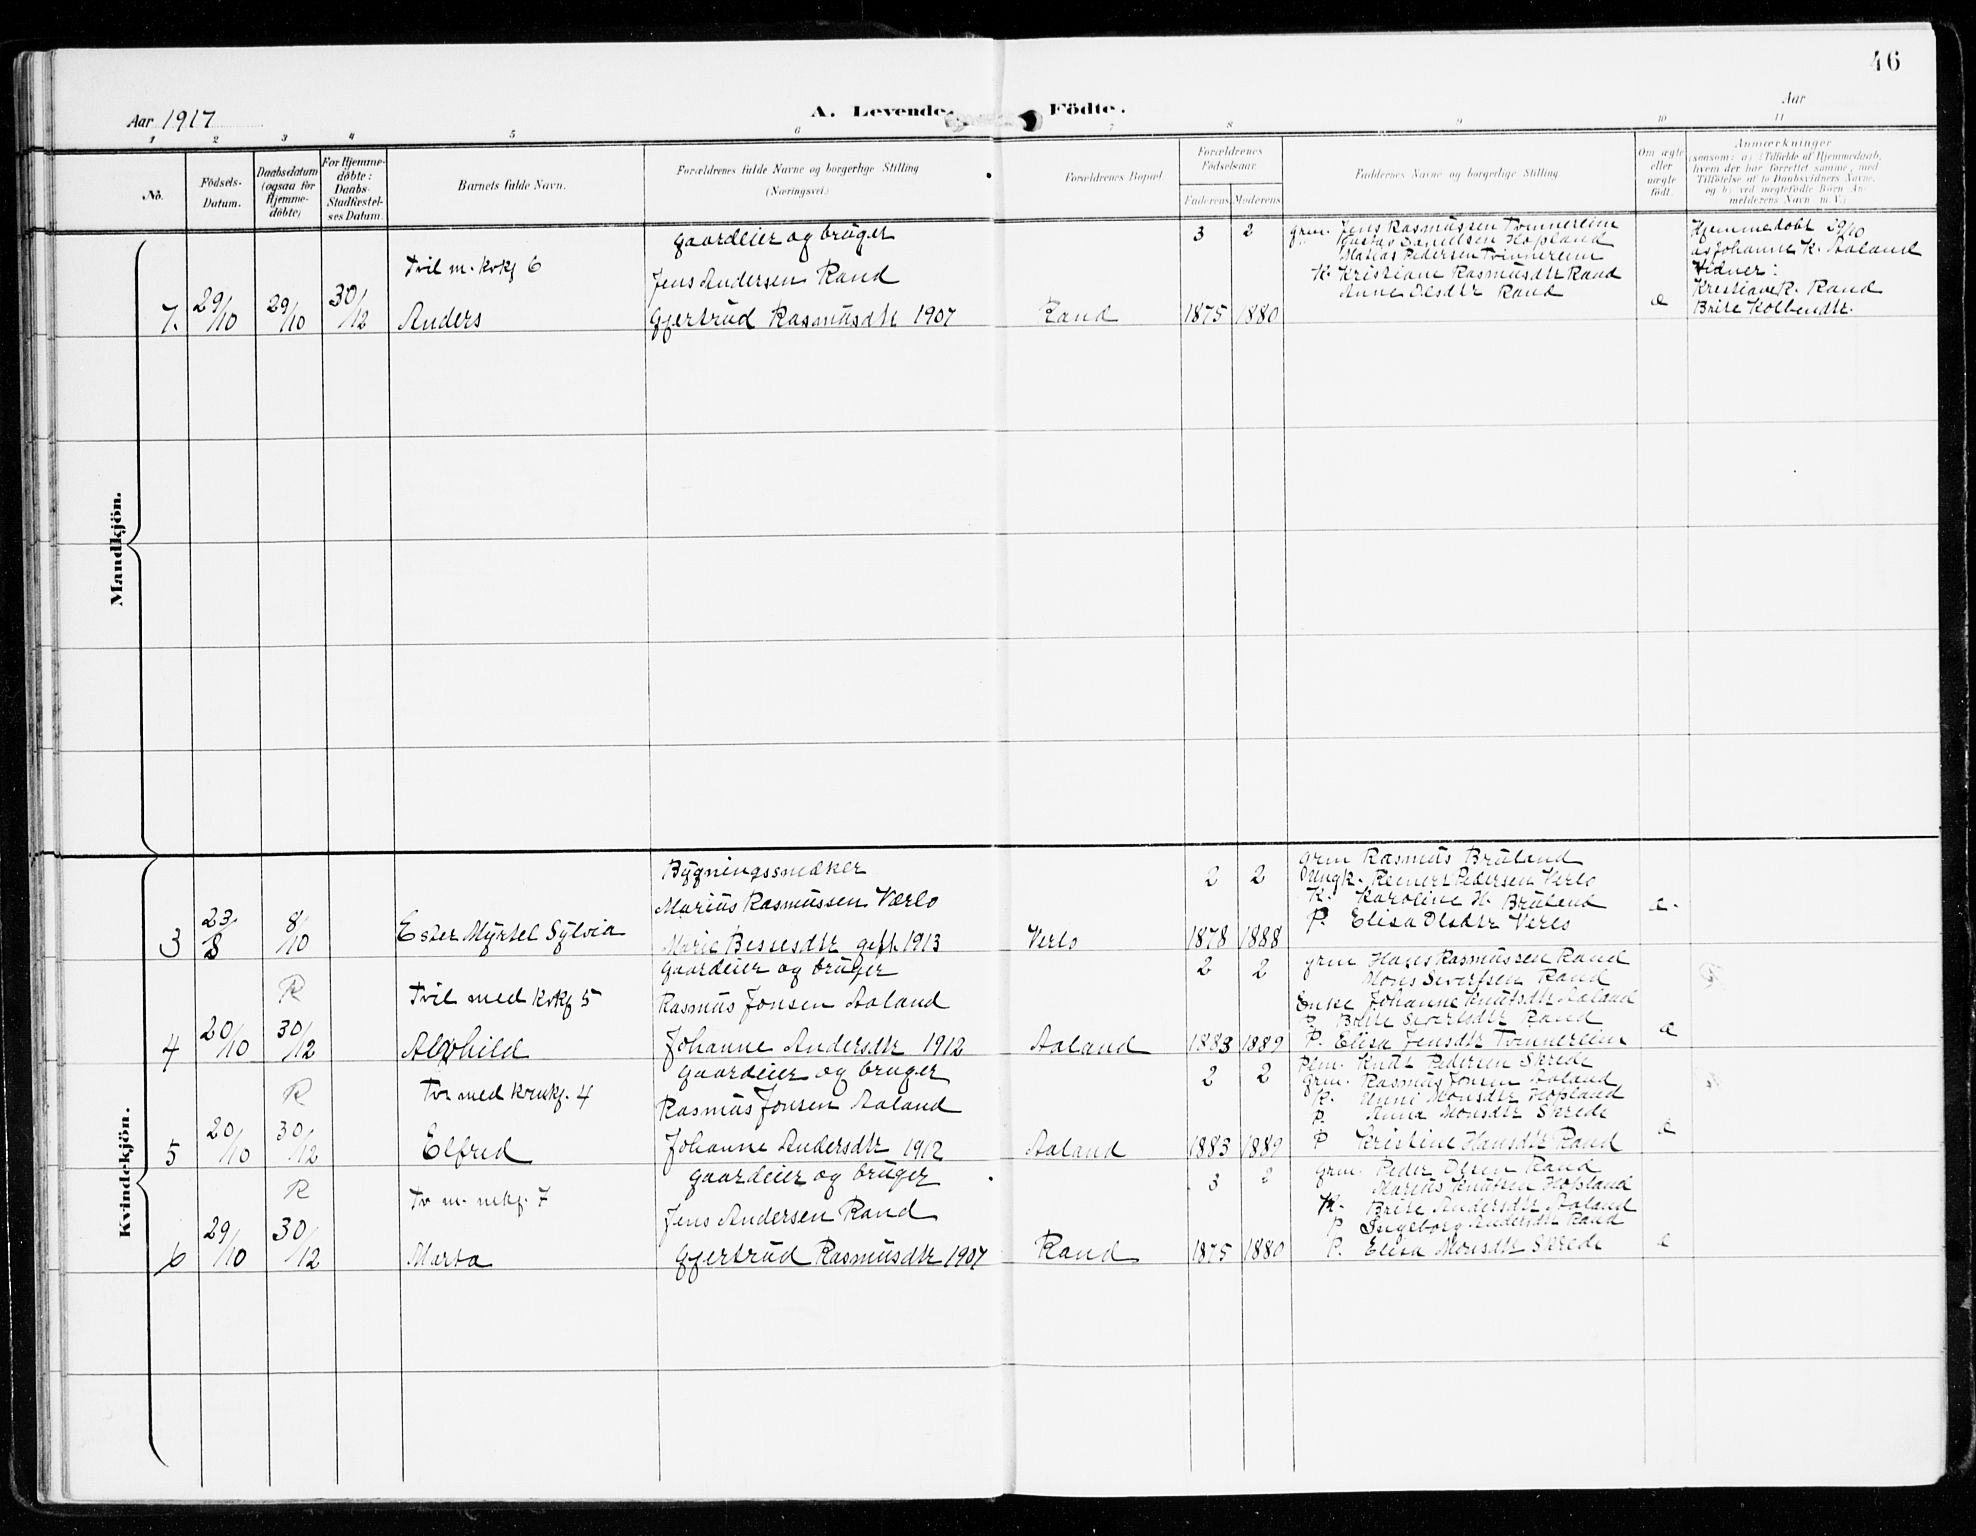 46
Aar 1917
A. Levende
Födte.
Aar
1 2 3 4 5 6 7 8 9 10 11
No.
Födsels-Datum.
Daabsdatum (ogsaa for Hjemme-döbte)
For Hjemme-döbte: Daabs-Stadfæstel-ses Datum.
Barnets fulde Navn.
Forældrenes fulde Navne og borgerlige Stilling
(Næringsvei.)
Forældrenes Bopæl.
Forældrenes Födselsaar.
Faderens Moderens
Faddernes Navne og borgerlige Stilling
Om ægte eller uægte födt.
Anmærkninger
(saasom: a) i Tilfælde af Hjemmedaab,
hvem der har forrettet samme, med
Tilföielse af to Daabsvidners Navne,
og b) ved uægtefödte Börn An-
melderens Navn m. V.)
Mandkjön.
7. 29/10 29/10 30/12
Tvil m. kvkj 6
Anders
gaardeier og bruger
Jens Andersen Rand
Gjertrud Rasmusdtr 1907
Rand
3 2
1875 1880
grm. Jens Rasmussen Tvinnereim
Gustav Danielsen Hopland
Matias Pedersen Tvinnereim
K. Kristiane Rasmusdtr Rand
Anne Olsdtr Rand
e
Hjemmedøbt 29/10
av Johanne K. Aaland
Vidner:
Kristiane R. Rand
Brite Kolbendtr.
Kvindekjön.
3 23/8 8/10
Ester Myrtel Sylvia
Bygningssnedker
Marius Rasmussen Værlo
Marie Bessesdtr gift 1913
Verlo
2 2
1878 1888
grm Rasmus Bruland
Ungk. Reinert Pedersen Verlo
K. Karoline H. Bruland
P. Elisa Olsdtr Verlo
e.
4 20/10 R 30/12
Tvil med kvkj 5
Alvhild
gaardeier og bruger
Rasmus Jonsen Aaland
Johanne Andersdtr 1912
Aaland
2 2
1883 1889
grm Hans Rasmussen Rand
Mons Sivertsen Rand
Enke Johanne Knutsdtr Aaland
P. Brite Sivertsdtr Rand
P. Elisa Jensdtr Tvinnereim
e
5 20/10 R 30/12
Tv med kvnkj. 4
Elfred
gaardeier og bruger
Rasmus Jonsen Aaland
Johanne Andersdtr 1912
Aaland
2 2
1883 1889
Knut Pedersen Skrede
grm. Rasmus Jonsen Aaland
K. Anne Monsdtr Hopland
P. Anna Monsdtr Skrede
P Kristine Hansdtr Rand
e
6 29/10 R 30/12
Tv m. mkj. 7
Marta
gaardeier og bruger
Jens Andersen Rand
Gjertrud Rasmusdtr 1907
Rand
3 2
1875 1880
grm. Peder Olsen Rand
Marius Knutsen Hopland
K. Brite Andersdtr Aaland
P Ingeborg Andersdtr Rand
P. Elisa Monsdtr Skrede
e